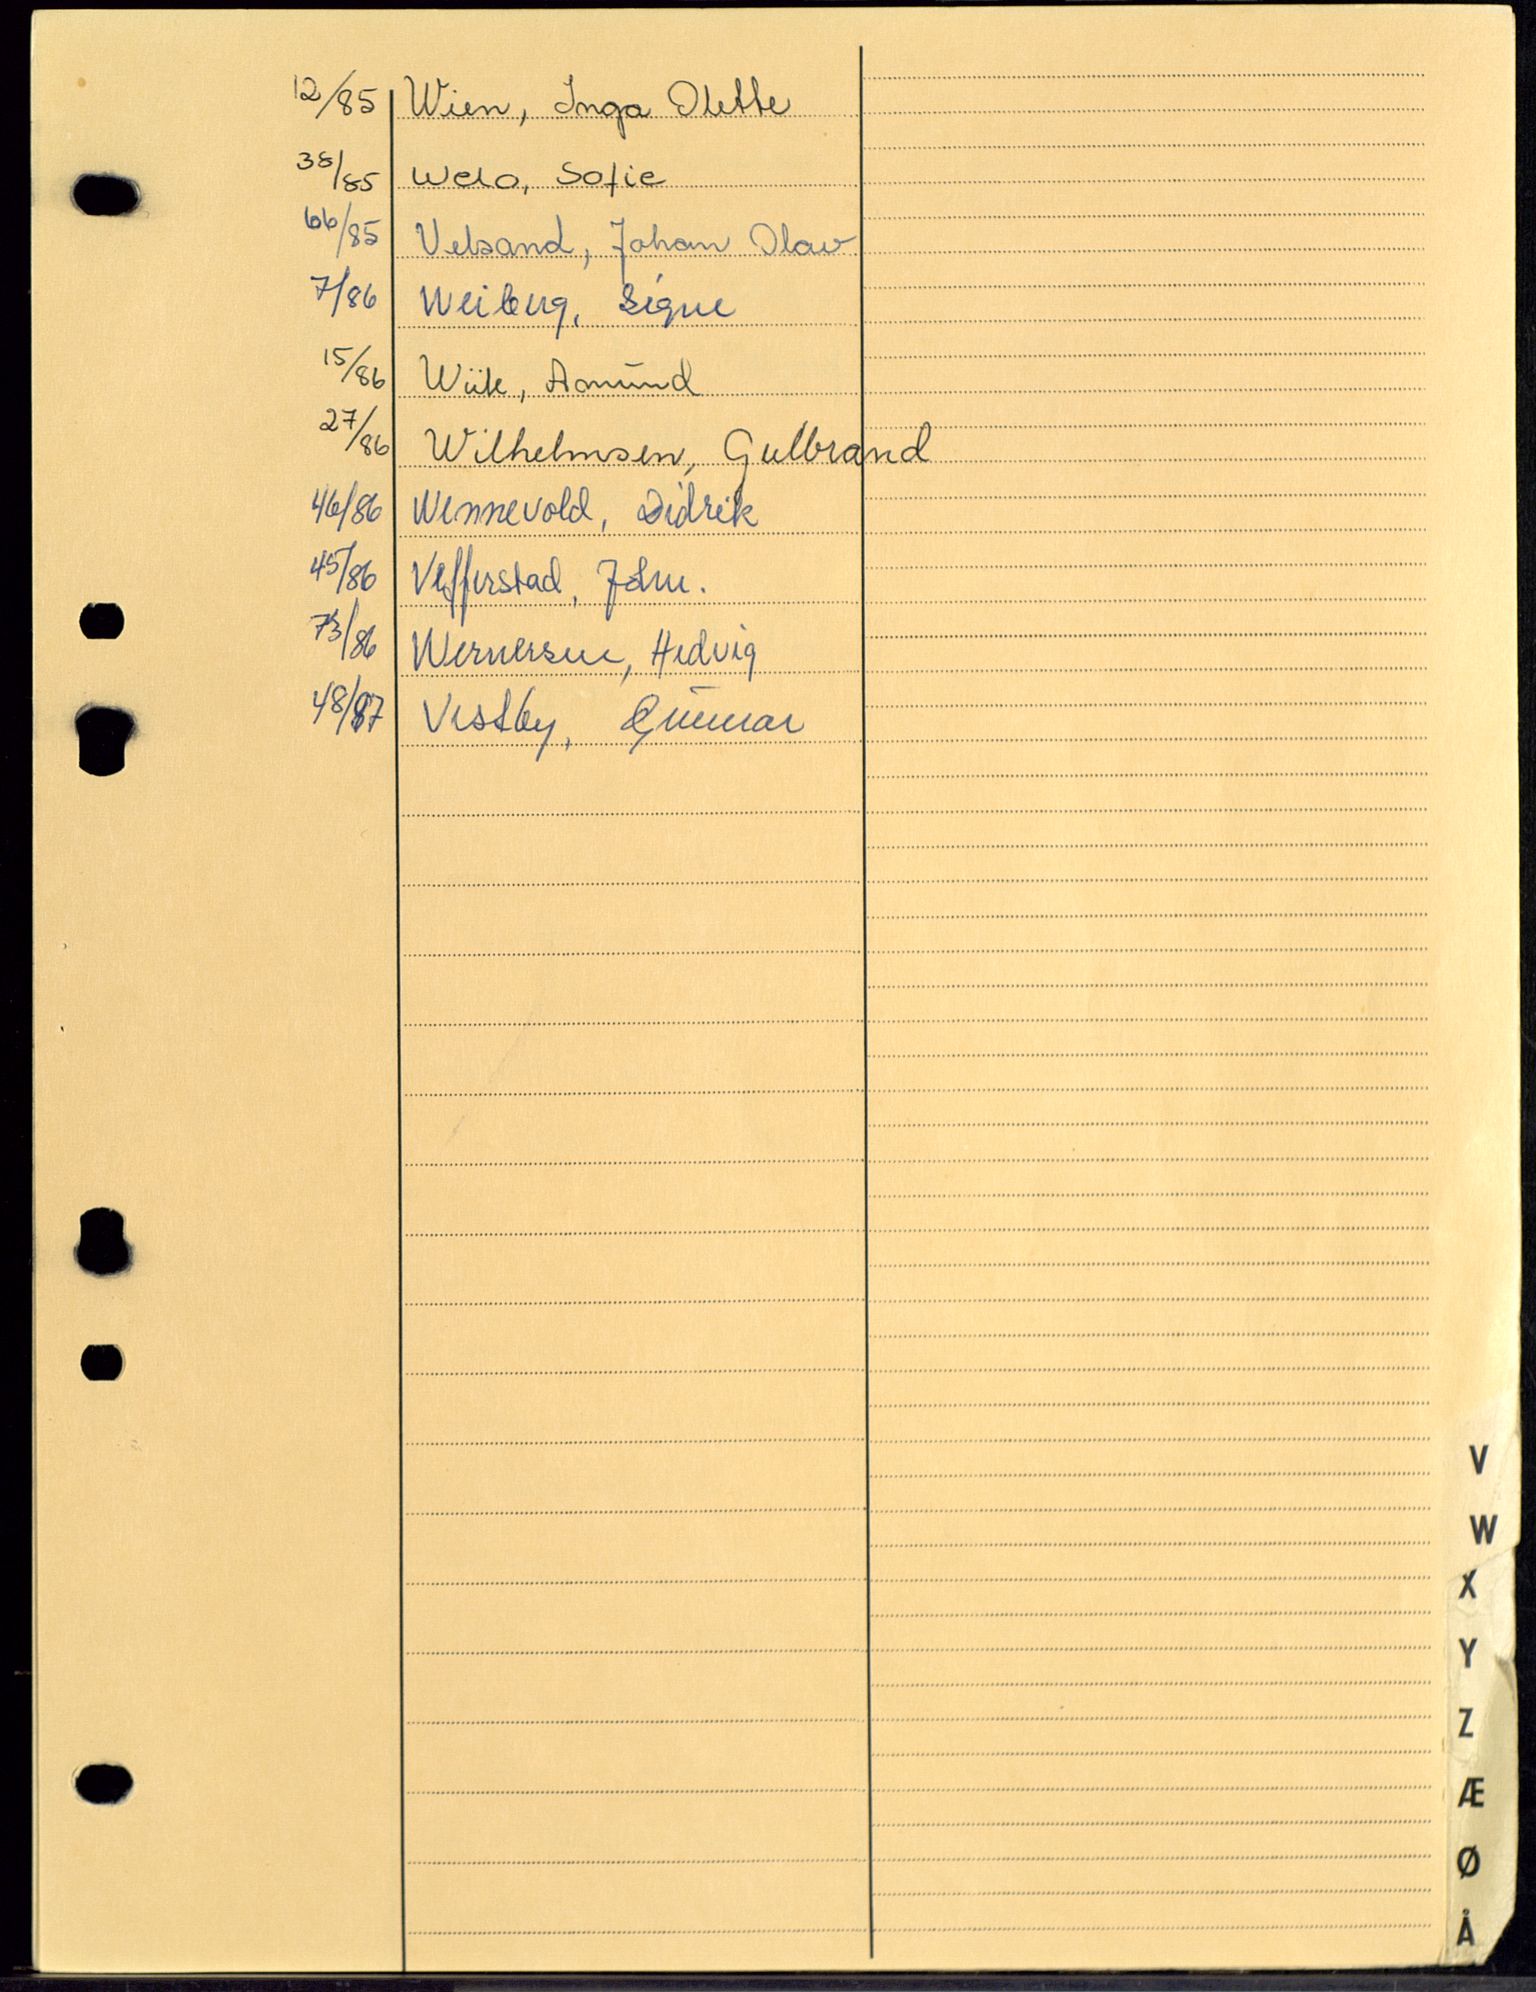 12/85 Wien, Inga Olette
38/85 Welo, Sofie
66/85 Velsand, Johan Olav
7/86 Weiberg, Signe
15/86 Wiik, Amund
27/86 Wilhelmsen, Gulbrand
46/86 Wennevold, Didrik
45/86 Vefferstad, John.
73/86 Wernersen, Hedvig
48/87 Vestby, Gunnar
V
W
X
Y
Z
Æ
Ø
Å